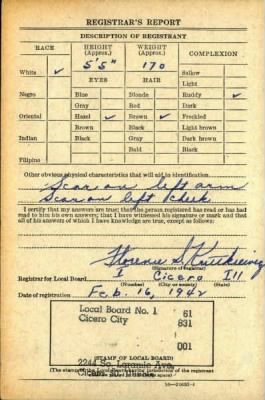 REGISTRAR'S REPORT
DESCRIPTION OF REGISTRANT
RACE HEIGHT (Approx.) WEIGHT (Approx.) COMPLEXION
5'5" 170
White ✓ Sallow
EYES HAIR Light
Negro Blue Blonde Ruddy ✓
Gray Red Dark
Oriental Hazel ✓ Brown ✓ Freckled
Brown Black Light brown
Indian Black Gray Dark brown
Bald Black
Filipino
Other obvious physical characteristics that will aid in identification
Scar on left arm
Scar on left cheek
I certify that my answers are true; that the person registered has read or has had
read to him his own answers; that I have witnessed his signature or mark and that
all of his answers of which I have knowledge are true, except as follows:
Florence S.
(Signature of registrar)
Registrar for Local Board 1 Cicero Ill
(Number) (City or county) (State)
Date of registration Feb. 16, 1942
Local Board No. 1 61
Cicero City 831
001
2244 So. Laramie Ave.
(STAMP OF LOCAL BOARD)
(The stamp of the Local Board having jurisdiction of the registrant
Cicero, Illinois